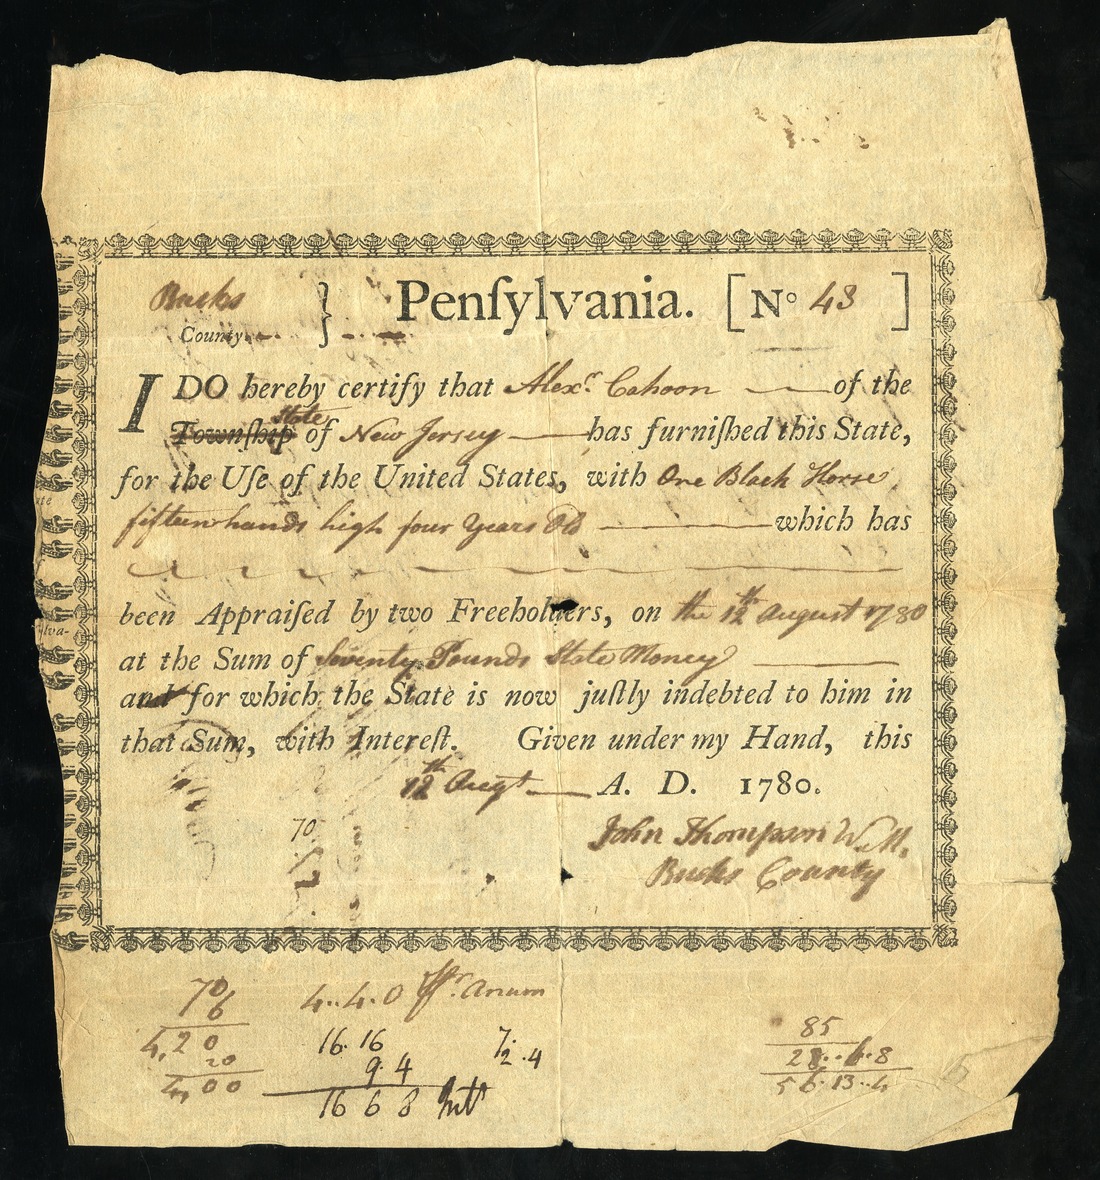 Bucks
County
Penſylvania. [No 43 ]
I DO hereby certify that Alexr. Cahoon of the
Townſhip State of New Jersey has furniſhed this State,
for the Uſe of the United States, with One Black Horse
fifteen hands high four Years Old which has
been Appraiſed by two Freeholders, on the 12th August 1780
at the Sum of Seventy Pounds State Money
and for which the State is now juſtly indebted to him in
that Sum, with Intereſt. Given under my Hand, this
12th Augt A. D. 1780.
70
John Thompson
Bucks County
70 4..4.0 Pr. Anum
6
4,20 16.16 7/2.4
20 9.4
4,00 16 6 8 Intt
85
28..6.8
56.13..4